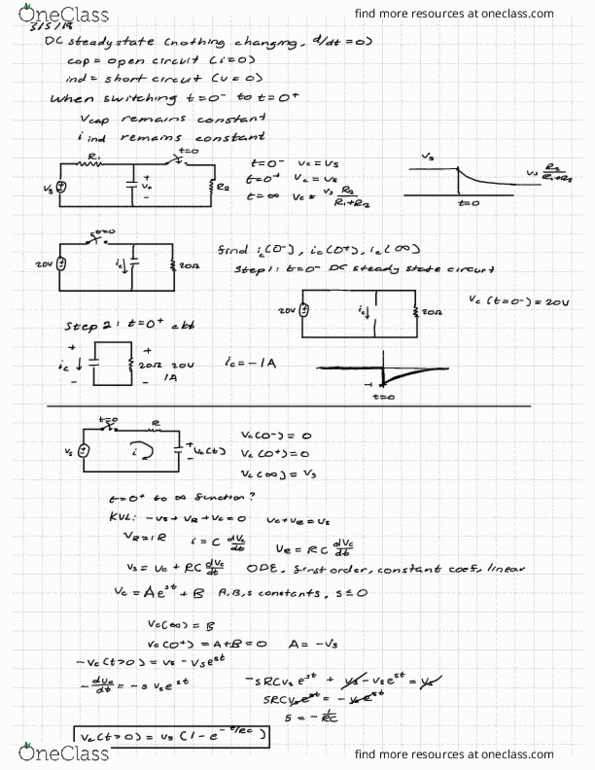 OneClass
find more resources at oneclass.com
3/5/18
DC steady state (nothing changing, d/dt = 0)
cap = open circuit (i=0)
ind = short circuit (v=0)
when switching t=0⁻ to t=0⁺
Vcap remains constant
i ind remains constant
R₁
t=0
Vs
+
Vc
-
R₂
t=0⁻ Vc = Vs
t=0⁺ Vc = Vs
t=∞ Vc = Vs R₂/(R₁+R₂)
Vs
Vs R₂/(R₁+R₂)
t=0
t=0
20V
ic↓
20Ω
find ic(0⁻), ic(0⁺), ic(∞)
Step 1: t=0⁻ DC steady state circuit
20V
ic↓
20Ω
Vc (t=0⁻) = 20V
Step 2: t=0⁺ ckt
+
ic ↓
-
+
20Ω 20V
- 1A
ic = -1A
-1
t=0
t=0
R
Vs
i
+
Vc(t)
-
Vc(0⁻) = 0
Vc(0⁺) = 0
Vc(∞) = Vs
t=0⁺ to ∞ function?
KVL: -Vs + VR + Vc = 0 Vc + VR = Vs
VR = iR i = C dVc/dt VR = RC dVc/dt
Vs = Vc + RC dVc/dt ODE, first order, constant coef, linear
Vc = Ae^st + B A, B, s constants, s ≤ 0
Vc(∞) = B
Vc(0⁺) = A+B = 0 A = -Vs
-Vc(t>0) = Vs - Vs e^st
-dVc/dt = -s Vs e^st
-sRCVs e^st + Vs - Vs e^st = Vs
sRCVs e^st = -Vs e^st
s = -1/RC
Vc(t>0) = Vs (1 - e^-t/RC)
OneClass
find more resources at oneclass.com